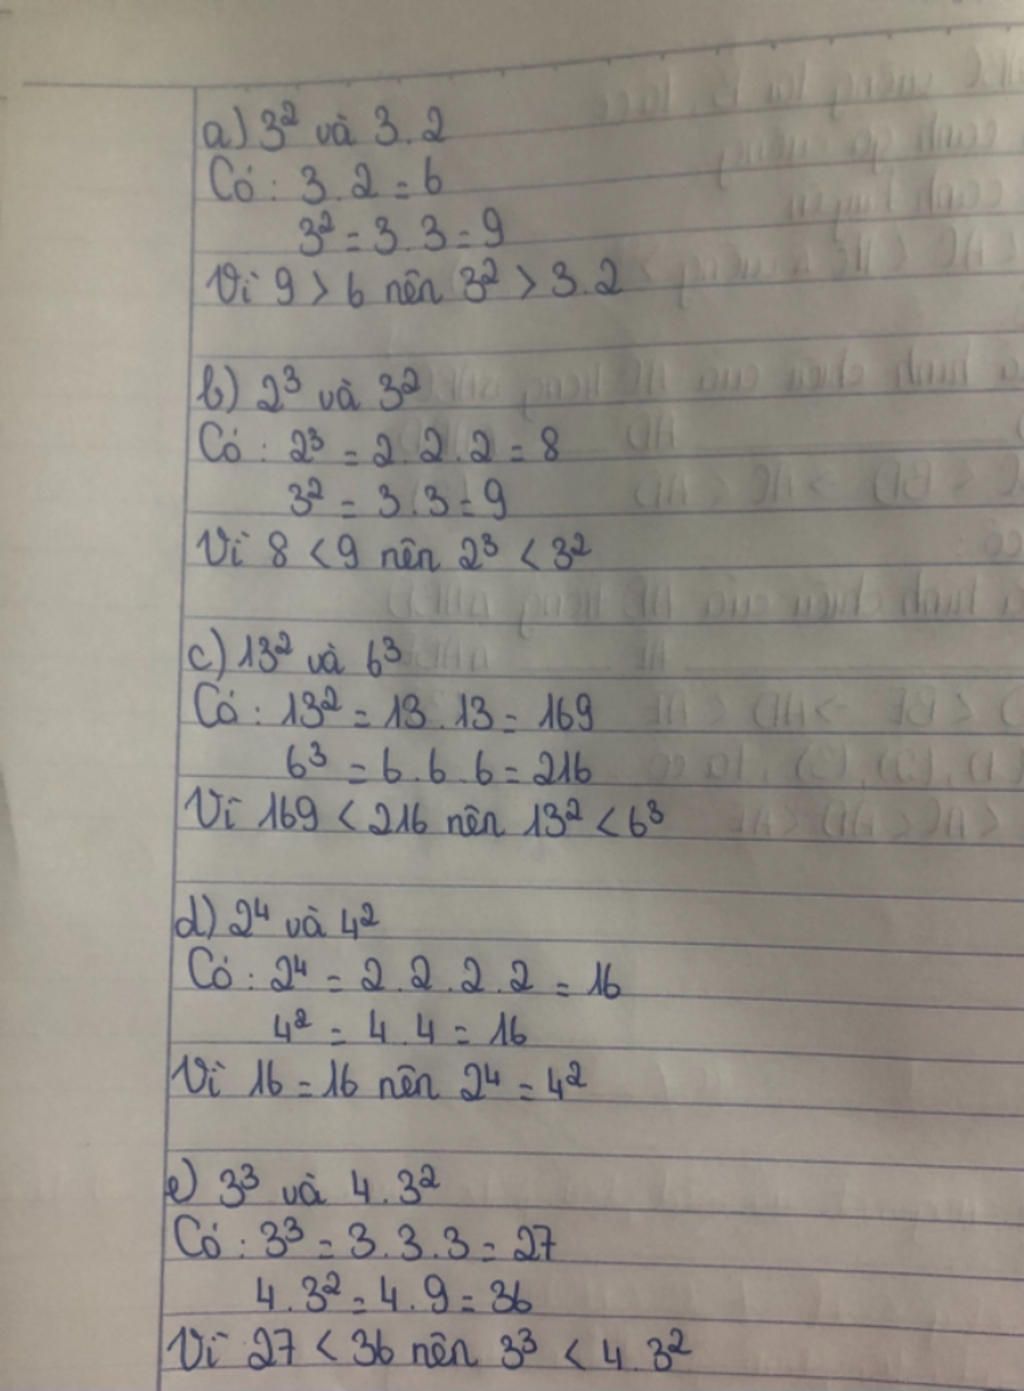 a) 3² và 3.2
Có: 3.2 = 6
3² = 3.3 = 9
Vì 9 > 6 nên 3² > 3.2
b) 2³ và 3²
Có: 2³ = 2.2.2 = 8
3² = 3.3 = 9
Vì 8 < 9 nên 2³ < 3²
c) 13² và 6³
Có: 13² = 13.13 = 169
6³ = 6.6.6 = 216
Vì 169 < 216 nên 13² < 6³
d) 2⁴ và 4²
Có: 2⁴ = 2.2.2.2 = 16
4² = 4.4 = 16
Vì 16 = 16 nên 2⁴ = 4²
e) 3³ và 4.3²
Có: 3³ = 3.3.3 = 27
4.3² = 4.9 = 36
Vì 27 < 36 nên 3³ < 4.3²